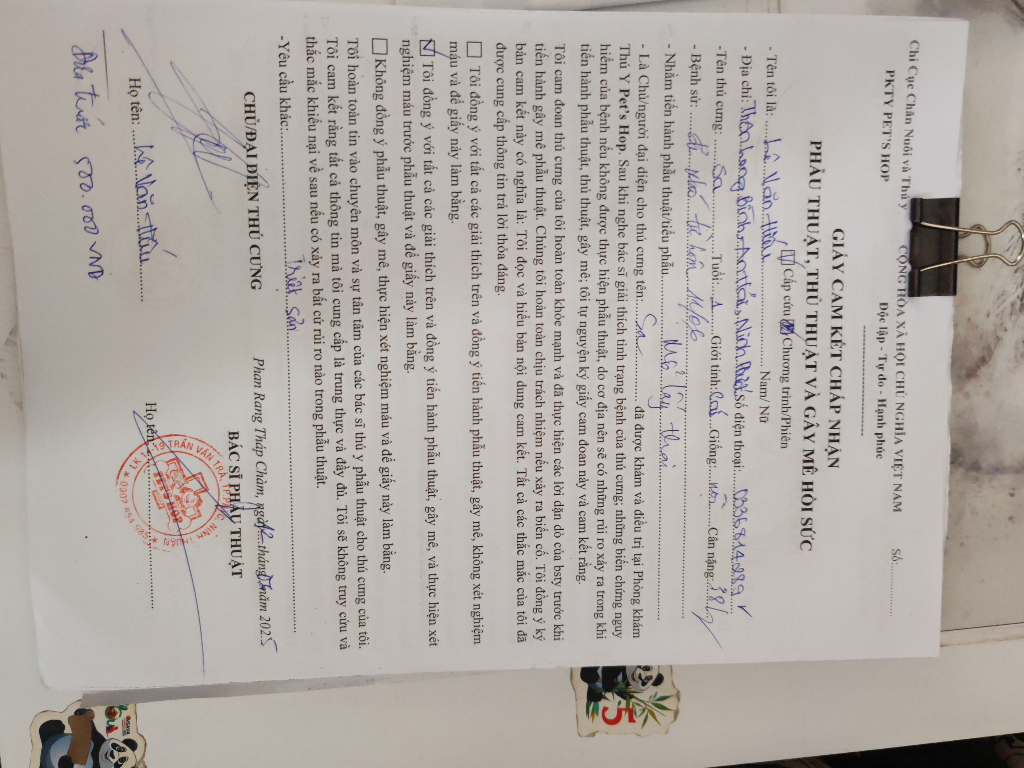 Chi Cục Chăn Nuôi và Thú y CỘNG HÒA XÃ HỘI CHỦ NGHĨA VIỆT NAM Số:............
PKTY PET'S HOP Độc lập - Tự do - Hạnh phúc
GIẤY CAM KẾT CHẤP NHẬN
PHẪU THUẬT, THỦ THUẬT VÀ GÂY MÊ HỒI SỨC
Cấp cứu Chương trình/Phiên
- Tên tôi là: ....Lê Văn Hiếu.... Nam/ Nữ
- Địa chỉ: Ninh Số điện thoại: 0336814289
-Tên thú cưng: ....Sa.... Tuổi: ..1.. Giới tính: Cái Giống: Cân nặng:
- Bệnh sử:
- Nhằm tiến hành phẫu thuật/tiểu phẫu Mổ lấy thai
- Là Chủ/người đại diện cho thú cưng tên: ....Sa.... đã được khám và điều trị tại Phòng khám
Thú Y Pet's Hop. Sau khi nghe bác sĩ giải thích tình trạng bệnh của thú cưng; những biến chứng nguy
hiểm của bệnh nếu không được thực hiện phẫu thuật, do cơ địa nên sẽ có những rủi ro xảy ra trong khi
tiến hành phẫu thuật, thủ thuật, gây mê; tôi tự nguyện ký giấy cam đoan này và cam kết rằng.
Tôi cam đoan thú cưng của tôi hoàn toàn khỏe mạnh và đã thực hiện các lời dặn dò của bsty trước khi
tiến hành gây mê phẫu thuật. Chúng tôi hoàn toàn chịu trách nhiệm nếu xảy ra biến cố. Tôi đồng ý ký
bản cam kết này có nghĩa là: Tôi đọc và hiểu bản nội dung cam kết. Tất cả các thắc mắc của tôi đã
được cung cấp thông tin trả lời thỏa đáng.
Tôi đồng ý với tất cả các giải thích trên và đồng ý tiến hành phẫu thuật, gây mê, không xét nghiệm
máu và để giấy này làm bằng.
Tôi đồng ý với tất cả các giải thích trên và đồng ý tiến hành phẫu thuật, gây mê, và thực hiện xét
nghiệm máu trước phẫu thuật và để giấy này làm bằng.
Không đồng ý phẫu thuật, gây mê, thực hiện xét nghiệm máu và để giấy này làm bằng.
Tôi hoàn toàn tin vào chuyên môn và sự tân tâm của các bác sĩ thú y phẫu thuật cho thú cưng của tôi.
Tôi cam kết rằng tất cả thông tin mà tôi cung cấp là trung thực và đầy đủ. Tôi sẽ không truy cứu và
thắc mắc khiếu nại về sau nếu có xảy ra bất cứ rủi ro nào trong phẫu thuật.
-Yêu cầu khác: Triệt sản
Phan Rang Tháp Chàm, ngày tháng năm 2025
CHỦ/ĐẠI DIỆN THÚ CƯNG BÁC SĨ PHẪU THUẬT
Họ tên: ....Lê Văn Hiếu.... Họ tên
500.000 VNĐ
5